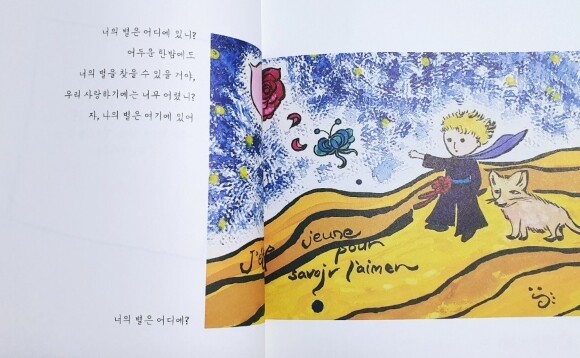 너의 별은 어디에 있니?
어두운 한밤에도
너의 별을 찾을 수 있을 거야,
우리 사랑하기에는 너무 어렸니?
자, 나의 별은 여기에 있어
jeune
pour
savoir l'aimer
?
너의 별은 어디에?